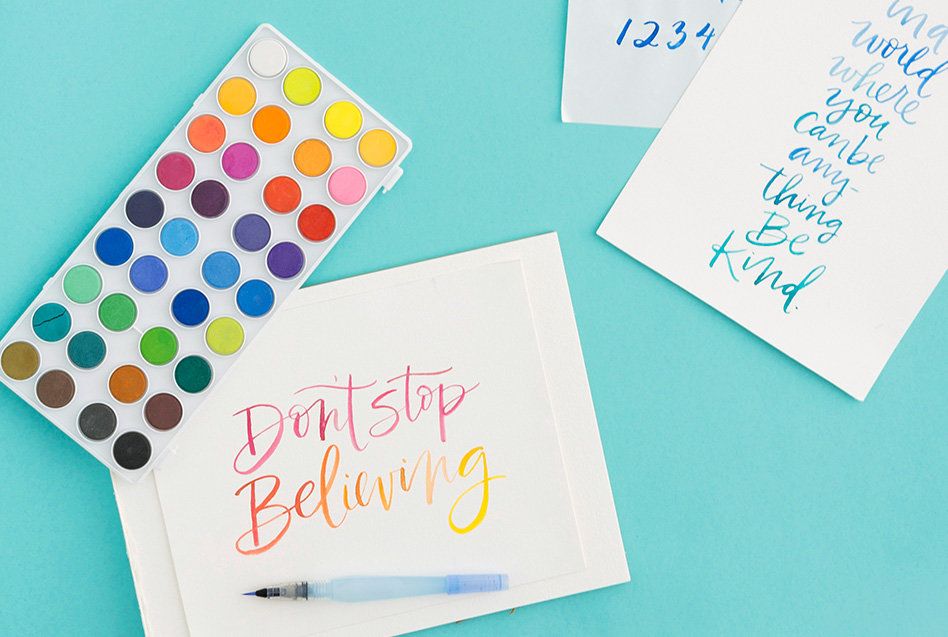 1234
in a
world
where
you
can be
any-
thing
Be
Kind.
Don't stop
Believing